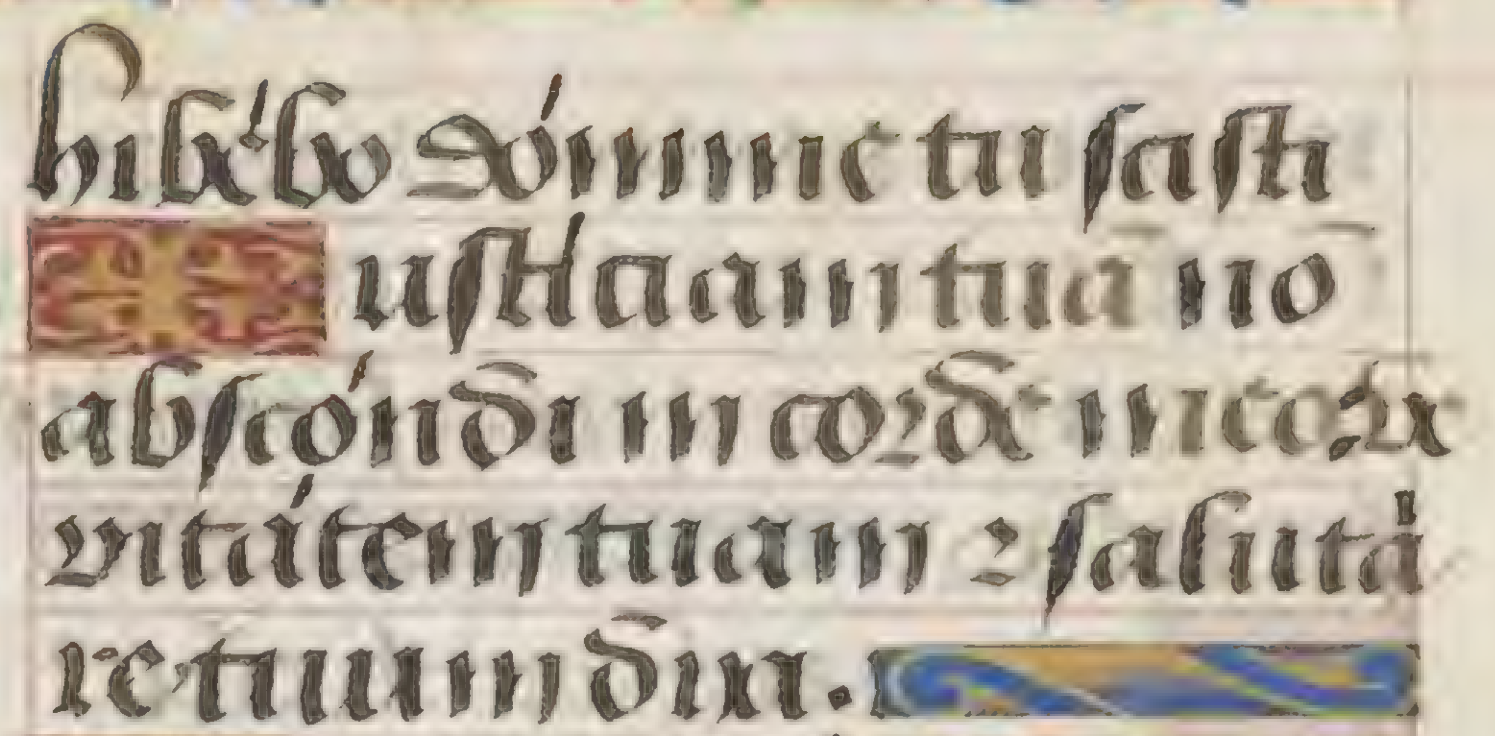 hibébo dómine tu scisti
ustítiam tuā nō
abscóndi in corde meo: ve
ritátem tuam ⁊ salutá
re tuum dixi.